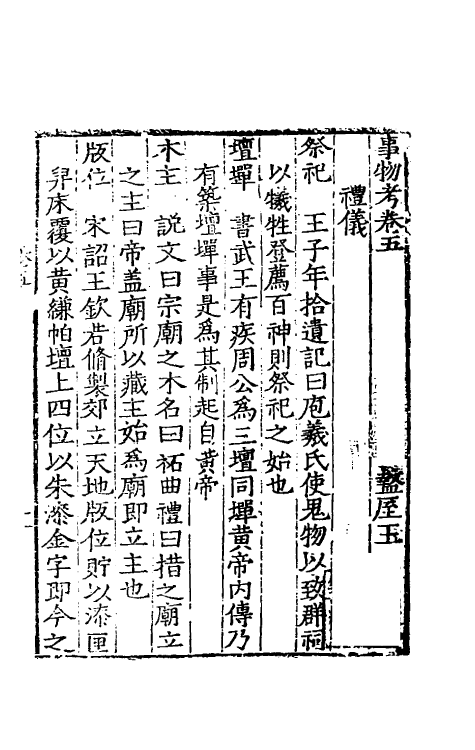 事物考卷五 盩厔王
禮儀
祭祀 王子年拾遺記曰庖羲氏使鬼物以致群祠
以犧牲登薦百神則祭祀之始也
壇墠 書武王有疾周公為三壇同墠黄帝内傳乃
有築壇墠事是為其制起自黄帝
木主 說文曰宗廟之木名曰祏曲禮曰措之廟立
之主曰帝盖廟所以藏主始為廟即立主也
版位 宋詔王欽若脩製郊立天地版位貯以漆匣
舁床覆以黄縑帕壇上四位以朱漆金字即今之